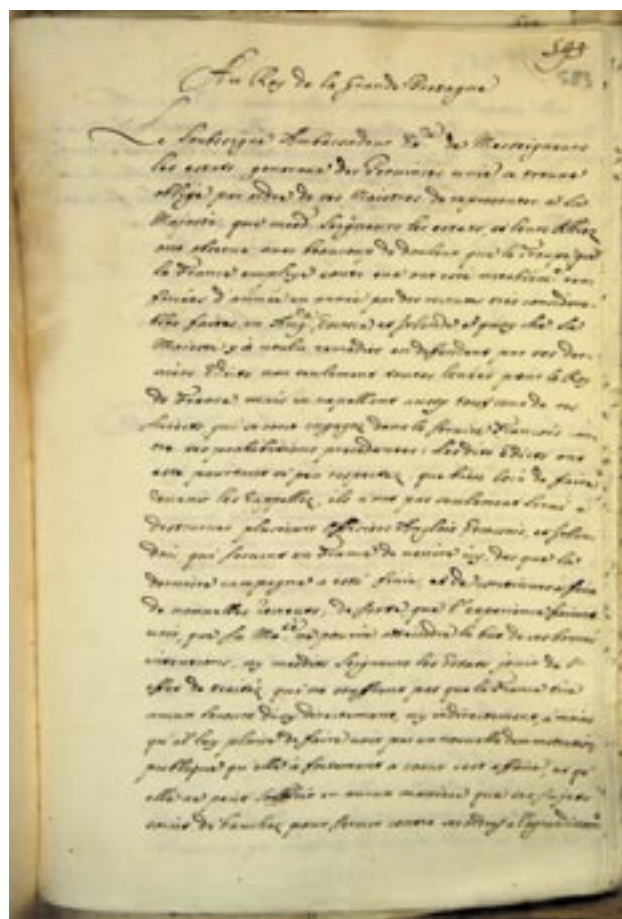 544
583
Au Roy de la Grande Bretagne
Le Soubsigné Ambassadeur de Messeigneurs
les estats generaux des Provinces unies se trouve
obligé par ordre de ses Maistres de representer a Sa
Majesté, que Seigneurs les estats, et leurs Alliez
ont observé avec beaucoup de douleur que les Troupes que
la France employe contre eux ont esté
d'année en année par des recrues tres considera-
bles faites en Escosse et Irlande et quoy que Sa
Majesté y a voulu remedier en defendant par ses der-
niers Edicts non seulement toutes levées pour le Roy
de France mais en rapellant aussy tous ceux de ses
sujects qui se sont engagez dans le service François
ses prohibitions precedentes; Lesdits Edicts ont
esté pourtant si peu respectez, que bien loin de faire
revenir les Rappellez, ils n'ont pas seulement servi a
plusieurs officiers Anglois Escossois, et Irlan-
dois, qui servent en France de venir icy, des que la
derniere campagne a esté finie, et de continuer a faire
de nouvelles de sorte que l'experience faisant
voir, que Sa Ma.té ne pourra atteindre le but de ses bonnes
intentions, ny mesdits Seigneurs les Estats jouir de l'
effet du traité, qui ne souffrent pas que la France tire
aucun secours d'icy directement, ny indirectement, a moins
qu'il luy plaise de faire voir par une nouvelle demonstration
publique qu'elle a fortement a coeur cest affaire, et qu'
elle ne peut souffrir en aucune maniere que ses sujets
soient pour servir contre